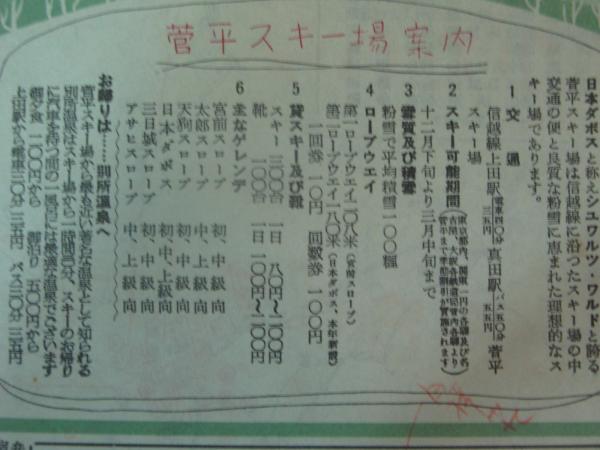 菅平スキー場案内
日本ダボスと称えシユワルツ・ワルドと誇る
菅平スキー場は信越線に沿つたスキー場の中
交通の便と良質な粉雪に恵まれた理想的なス
キー場であります。
1 交通
信越線上田駅 電車四〇分 三五円 真田駅 バス五〇分 五五円 菅平
スキー場
2 スキー可能期間
十二月下旬より三月中旬まで
3 雪質及び積雪
粉雪で平均積雪一〇〇糎
4 ロープウエイ
第一ロープウエイ二〇八米(宮前スロープ)
第二ロープウエイ一八〇米(日本ダボス、本年新設)
一回券 一〇円 回数券 一〇〇円
5 貸スキー及び靴
スキー 三〇〇台 一日 八〇円〜一〇〇円
靴 一〇〇台 一日 一〇〇円〜二〇〇円
6 主なゲレンデ
宮前スロープ 初、中級向
太郎スロープ 中、上級向
天狗スロープ 初、中級向
日本ダボス 初、中、上級向
三日城スロープ 初、中級向
アサヒスロープ 中、上級向
お帰りは……別所温泉へ
菅平スキー場から最も近い著名な温泉として知られる
別所温泉はスキー場から一時間半分、スキーのお帰り
に汽車を待つ間の一風呂には最適な温泉でございます
御夕食 二〇〇円から 御泊り 五〇〇円から
上田駅から電車三〇分 三五円 バス三〇分 三五円